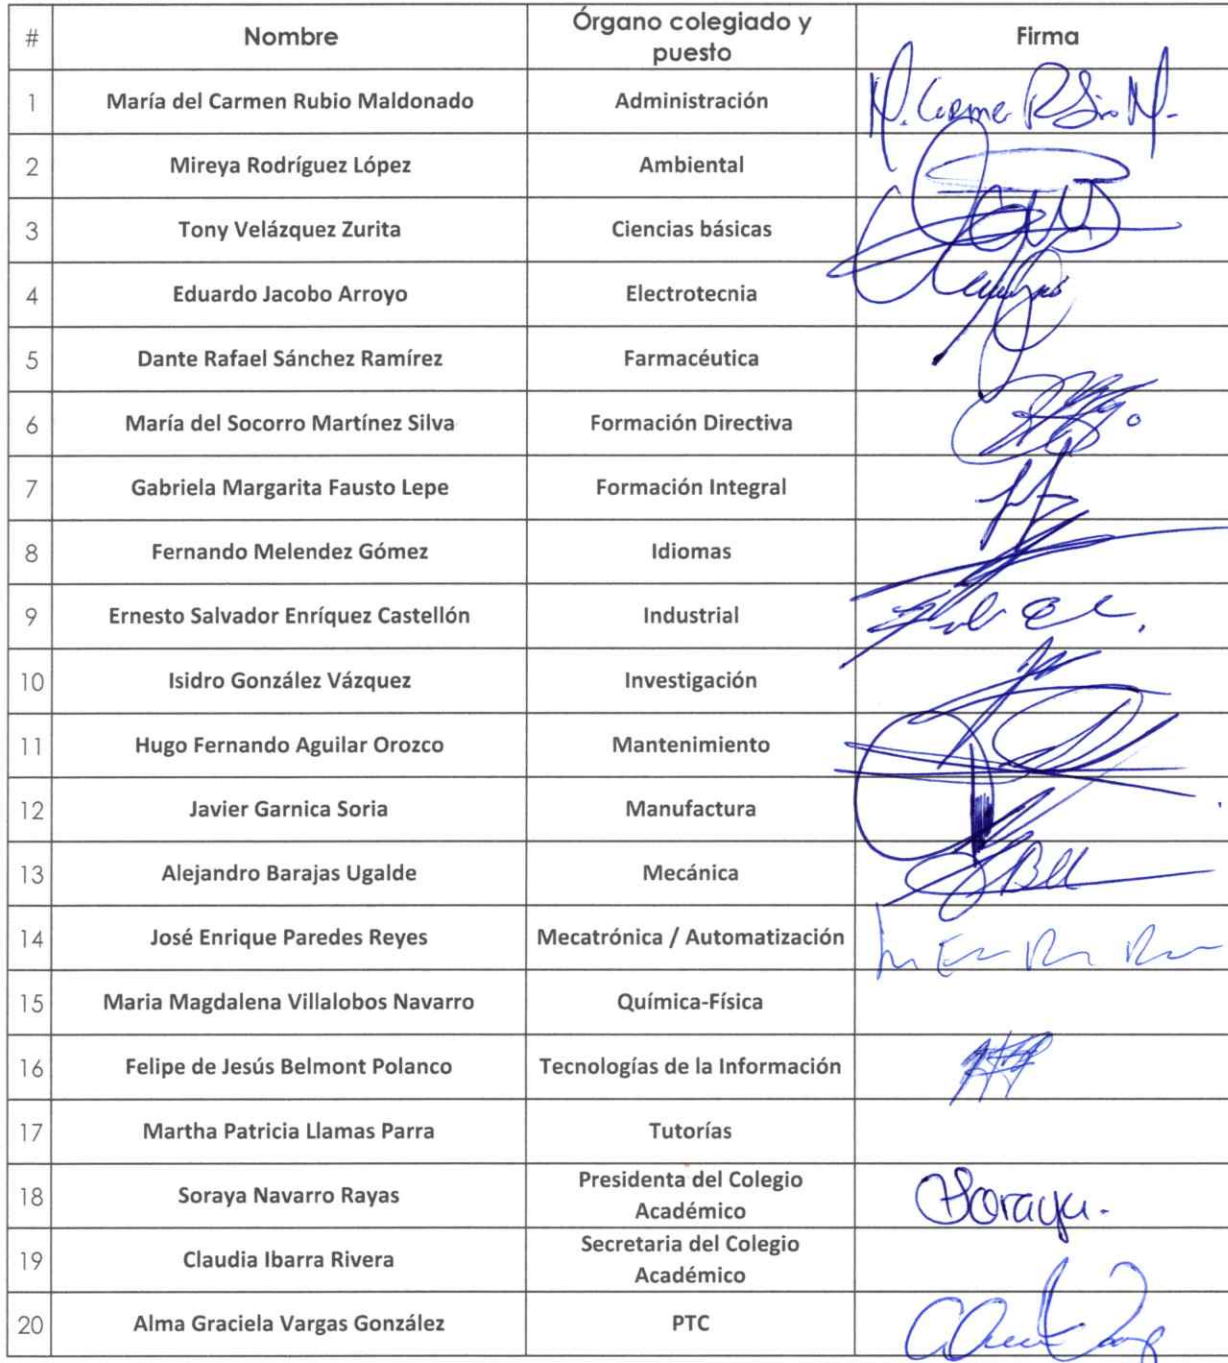 # Nombre Órgano colegiado y puesto Firma
1 María del Carmen Rubio Maldonado Administración M. Carmen Rubio M.
2 Mireya Rodríguez López Ambiental
3 Tony Velázquez Zurita Ciencias básicas
4 Eduardo Jacobo Arroyo Electrotecnia
5 Dante Rafael Sánchez Ramírez Farmacéutica
6 María del Socorro Martínez Silva Formación Directiva
7 Gabriela Margarita Fausto Lepe Formación Integral
8 Fernando Melendez Gómez Idiomas
9 Ernesto Salvador Enríquez Castellón Industrial
10 Isidro González Vázquez Investigación
11 Hugo Fernando Aguilar Orozco Mantenimiento
12 Javier Garnica Soria Manufactura
13 Alejandro Barajas Ugalde Mecánica
14 José Enrique Paredes Reyes Mecatrónica / Automatización
15 Maria Magdalena Villalobos Navarro Química-Física
16 Felipe de Jesús Belmont Polanco Tecnologías de la Información
17 Martha Patricia Llamas Parra Tutorías
18 Soraya Navarro Rayas Presidenta del Colegio Académico Soraya.
19 Claudia Ibarra Rivera Secretaria del Colegio Académico
20 Alma Graciela Vargas González PTC